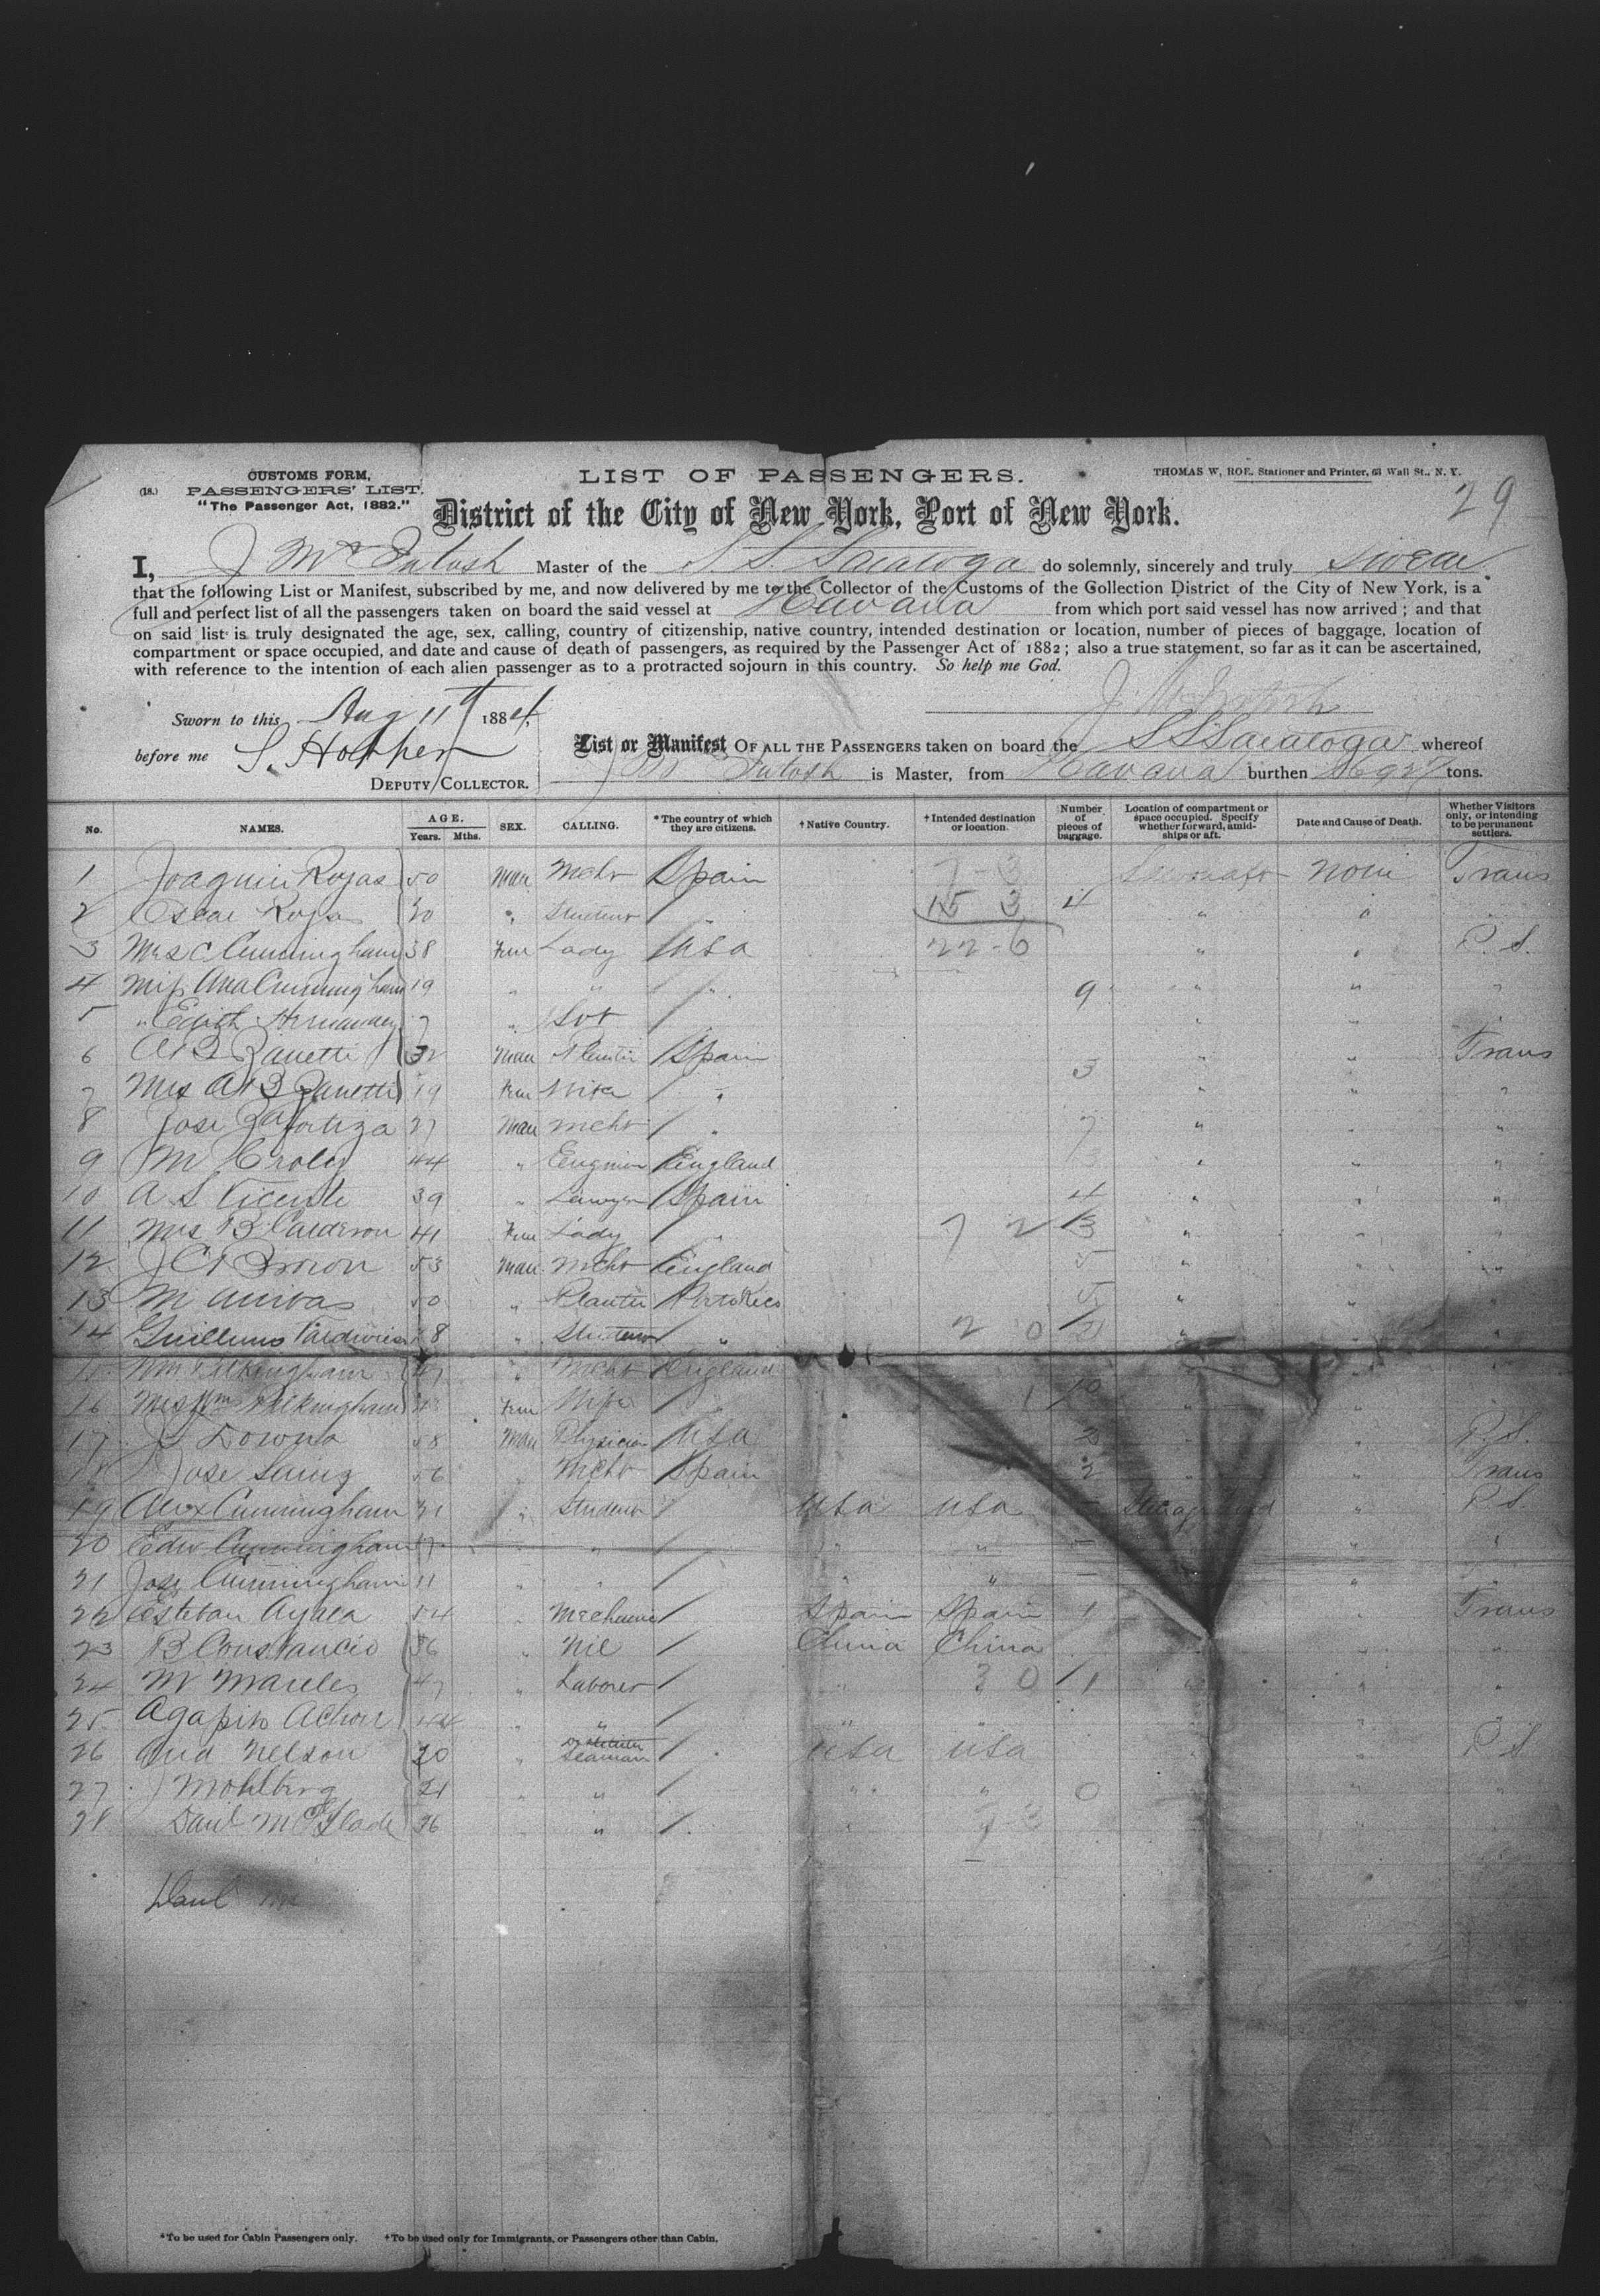 CUSTOMS FORM, LIST OF PASSENGERS. THOMAS W. ROE, Stationer and Printer, 63 Wall St., N. Y.
(18.) PASSENGERS' LIST.
"The Passenger Act, 1882." District of the City of New York, Port of New York. 29
I, J McIntosh Master of the S S Saratoga do solemnly, sincerely and truly swear
that the following List or Manifest, subscribed by me, and now delivered by me to the Collector of the Customs of the Collection District of the City of New York, is a
full and perfect list of all the passengers taken on board the said vessel at Havana from which port said vessel has now arrived; and that
on said list is truly designated the age, sex, calling, country of citizenship, native country, intended destination or location, number of pieces of baggage, location of
compartment or space occupied, and date and cause of death of passengers, as required by the Passenger Act of 1882; also a true statement, so far as it can be ascertained,
with reference to the intention of each alien passenger as to a protracted sojourn in this country. So help me God.
J McIntosh
Sworn to this Aug 11th 1884,
before me S. Hopper
DEPUTY COLLECTOR.
List or Manifest OF ALL THE PASSENGERS taken on board the S S Saratoga whereof
McIntosh is Master, from Havana burthen tons.
No. NAMES. AGE. Years. Mths. SEX. CALLING. *The country of which they are citizens. †Native Country. †Intended destination or location. Number of pieces of baggage. Location of compartment or space occupied. Specify whether forward, amidships or aft. Date and Cause of Death. Whether Visitors only, or intending to be permanent settlers.
1 Joaquin Rojas 50 Man Mcht Spain 7-3 None Trans
2 Oscar Rojas 20 " Student " 15 3 4 " "
3 Mrs C Cunningham 38 Fem Lady USA 22-6 " " P. S.
4 Miss Ana Cunningham 19 " " " 9 " " "
5 " Edith Hernandez 7 " " "
6 A B Zanetti 32 Man Planter Spain " " Trans
7 Mrs A B Zanetti 19 Fem Wife " 3 " " "
8 Jose 27 Man Mcht " 7 " " "
9 M Croley 44 " Engineer England 3 " " "
10 A S Vicente 39 " Lawyer Spain 4 " " "
11 Mrs B Calderon 41 Fem Lady " 7 2 3 " " "
12 J C Brown 53 Man Mcht England 5 " " "
13 M 50 " Planter Porto Rico 5 " " "
14 Guillermo 18 " Student " 2 0 " " "
15 Wm Pilkingham 47 " Mcht England "
16 Mrs Wm Pilkingham Fem Wife " 10 " " "
17 J 58 Man Physician USA " P. S.
18 Jose Sainz 56 " Mcht Spain 2 " " Trans
19 Alex Cunningham 21 " Student USA USA " P. S.
20 Edw Cunningham 17 " " " " " "
21 Jose Cunningham 11 " " " " " "
22 Esteban Ayala 54 " Mechanic Spain Spain 1 " Trans
23 B Constancio 36 " Nil China China " "
24 M 47 " Laborer " 3 0 1 " " "
25 Agapito Achon 44 " " " " " "
26 Nelson 20 " Seaman USA USA " P. S
27 J Mohlberg 21 " " " " 0 " "
28 Danl McGlade 36 " " " "
Danl Mc
*To be used for Cabin Passengers only. †To be used only for Immigrants, or Passengers other than Cabin.